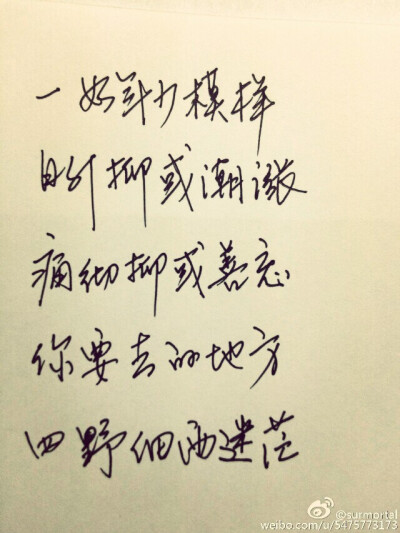 一如年少模样
日升抑或潮涨
痛彻抑或善忘
你要去的地方
四野细雨迷茫
@surmortal
weibo.com/u/5475773173